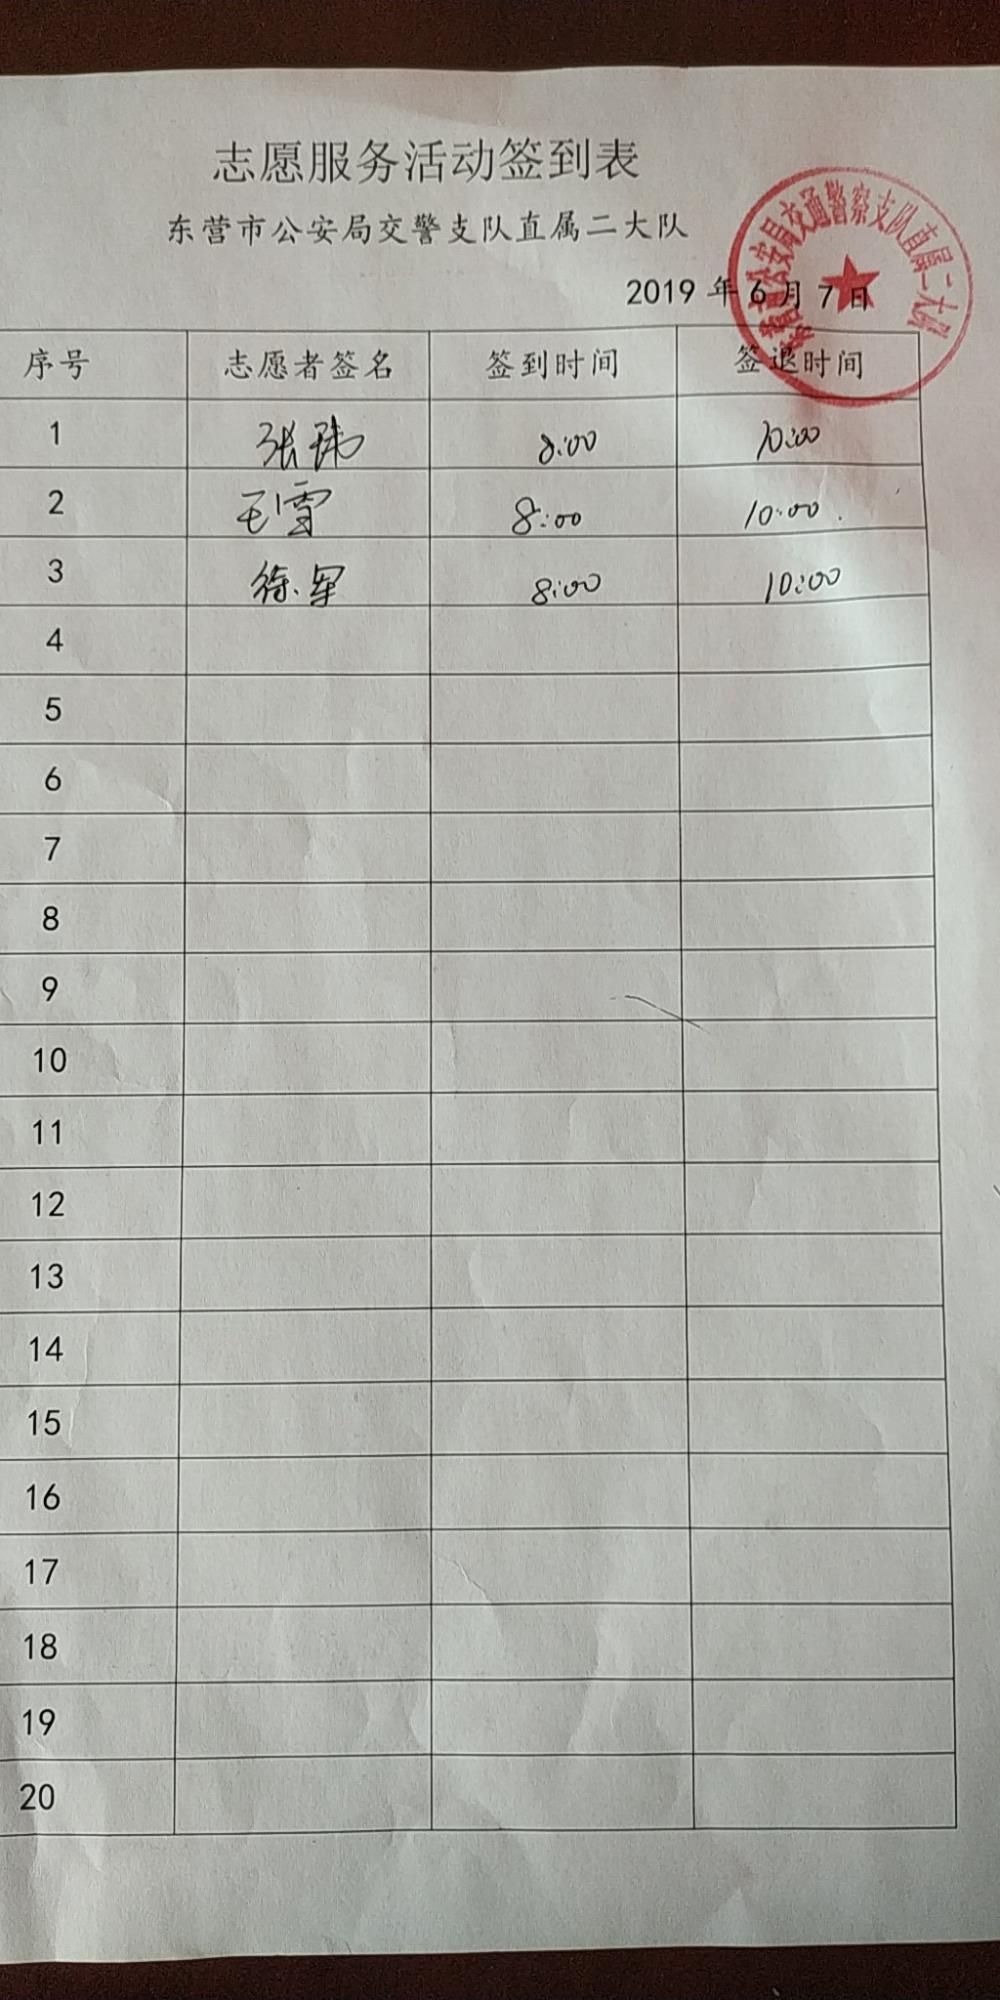 志愿服务活动签到表
东营市公安局交警支队直属二大队
东营市公安局交通警察支队直属二大队
2019 年 6 月 7 日
序号 志愿者签名 签到时间 签退时间
1 张玮 8:00 10:00
2 王雪 8:00 10:00
3 徐军 8:00 10:00
4
5
6
7
8
9
10
11
12
13
14
15
16
17
18
19
20